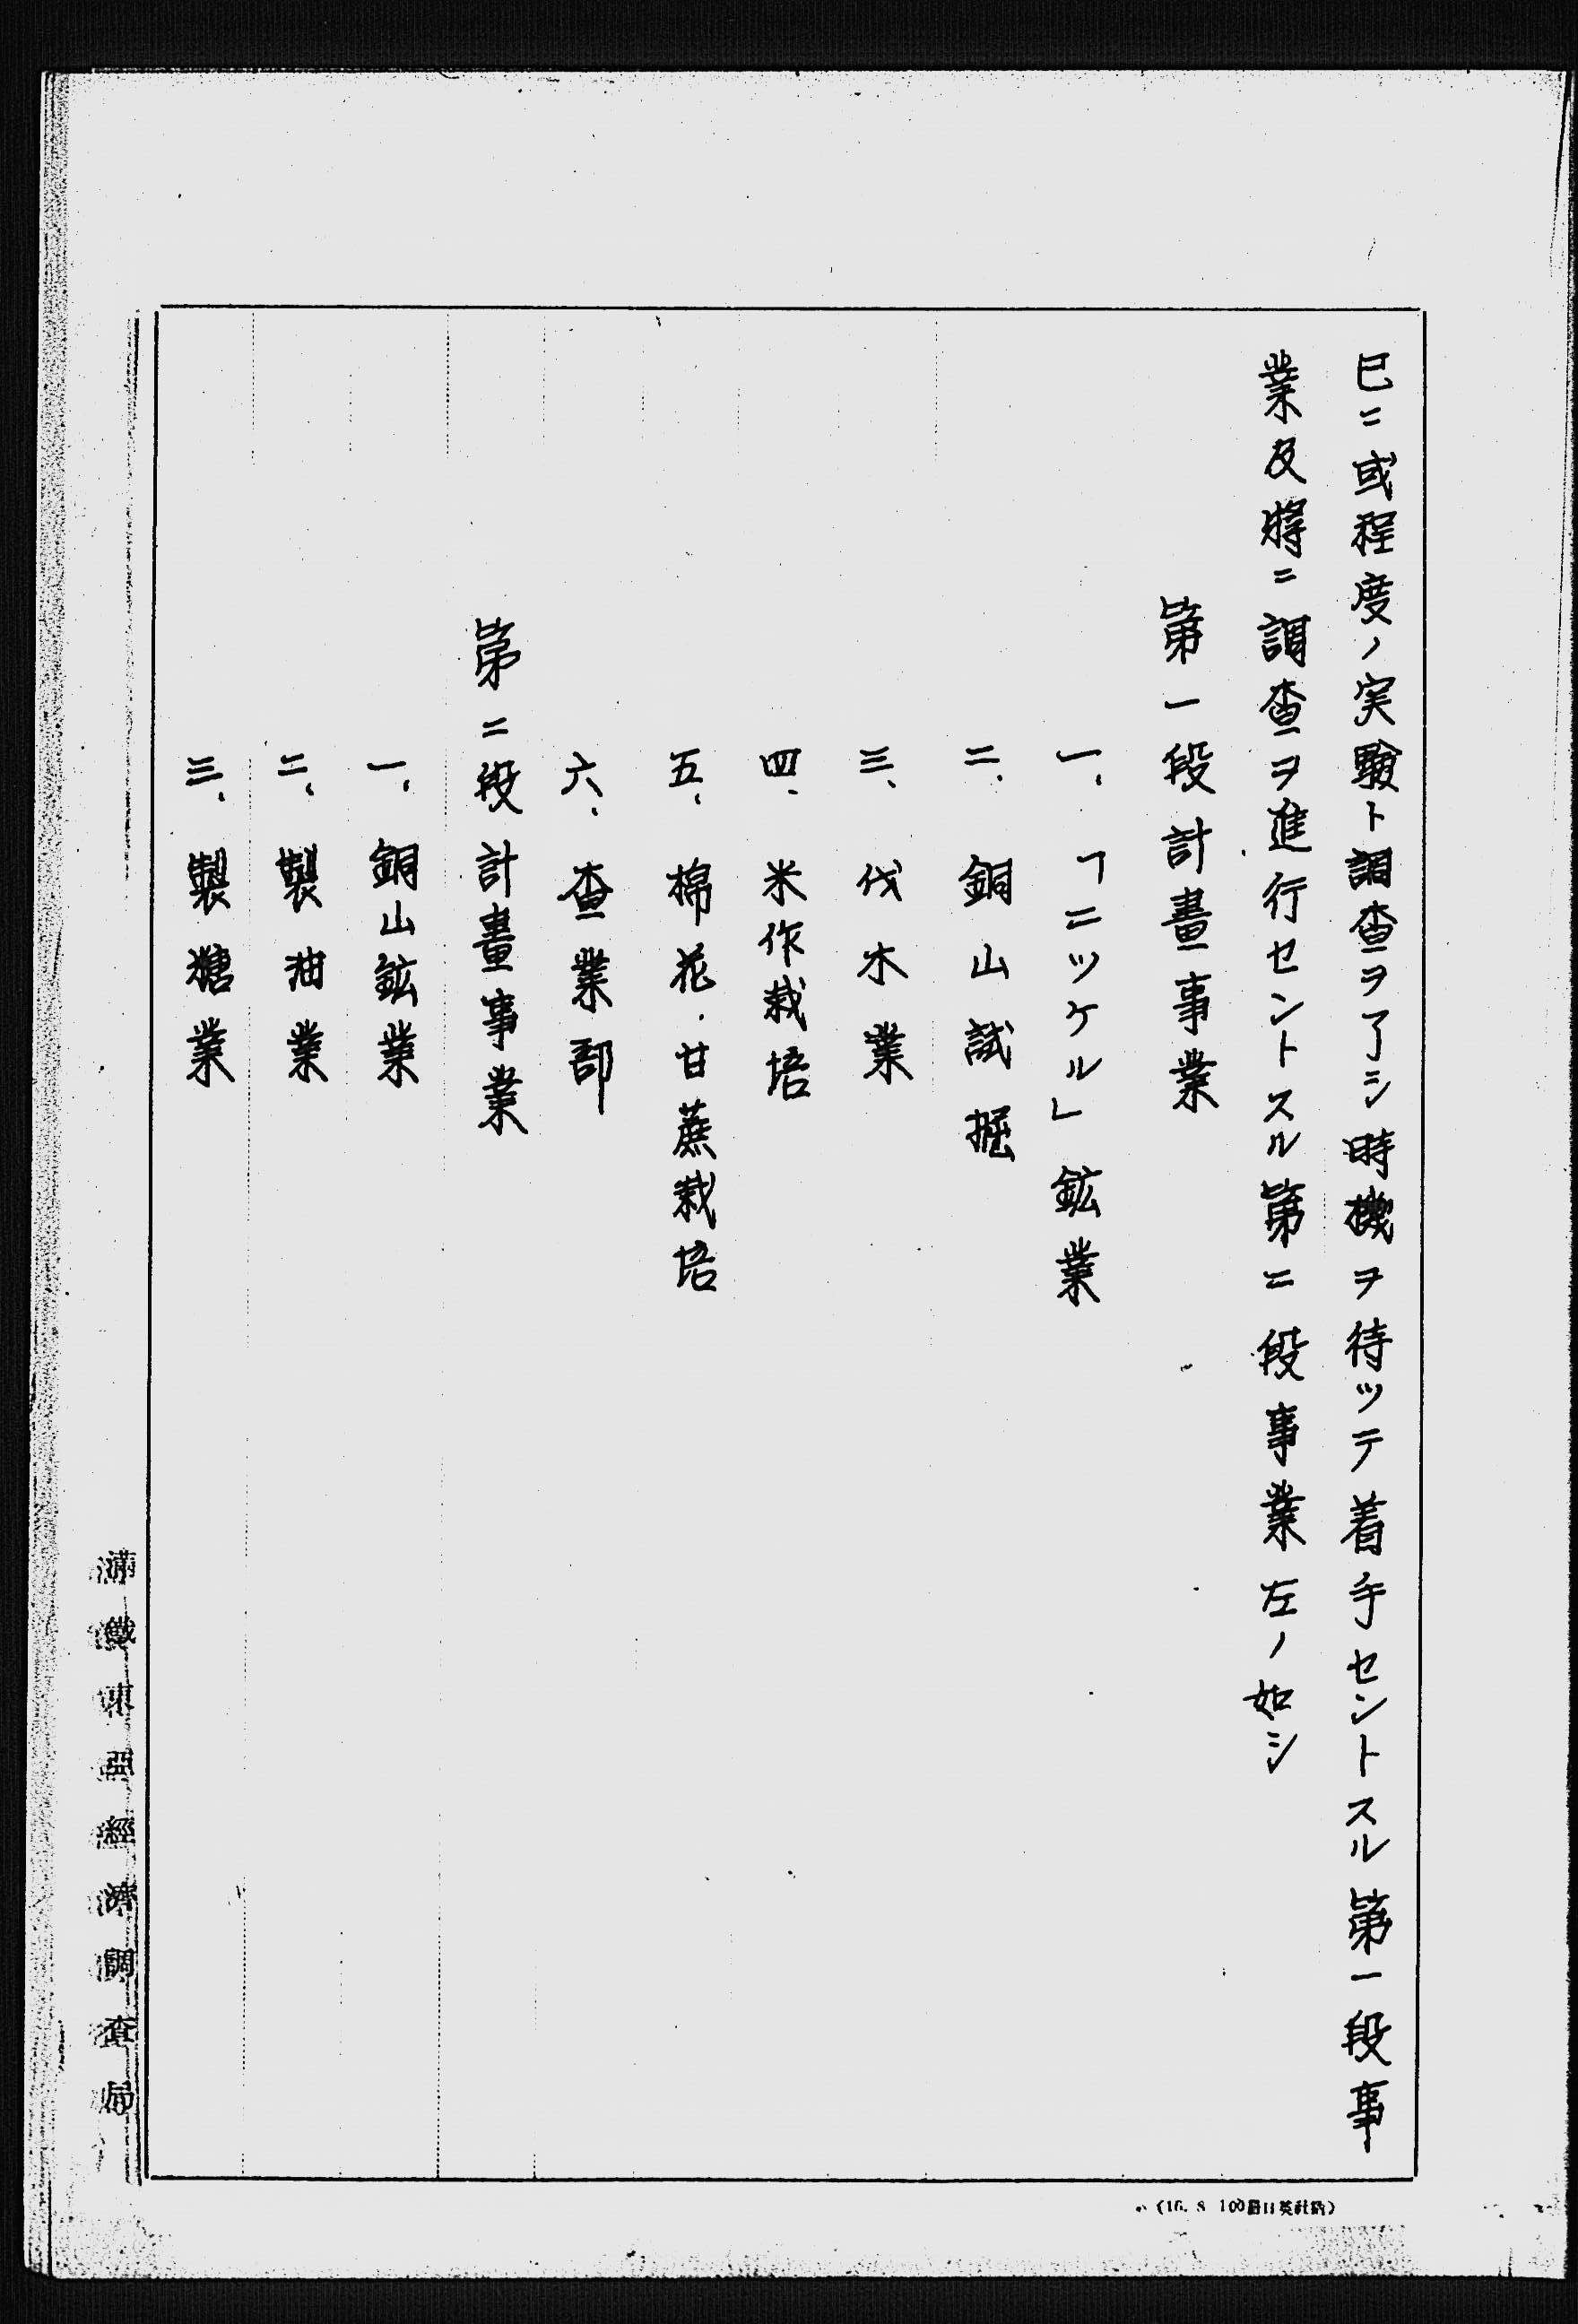 已ニ或程度ノ実験ト調査ヲ了シ時機ヲ待ッテ着手セントスル第一段事
業及將ニ調査ヲ進行セントスル第二段事業左ノ如シ
第一段計畫事業
一、「ニッケル」鉱業
二、銅山試掘
三、伐木業
四、米作栽培
五、棉花・甘蔗栽培
六、査業部
第二段計畫事業
一、銅山鉱業
二、製油業
三、製糖業
滿鐵東亞經濟調査局